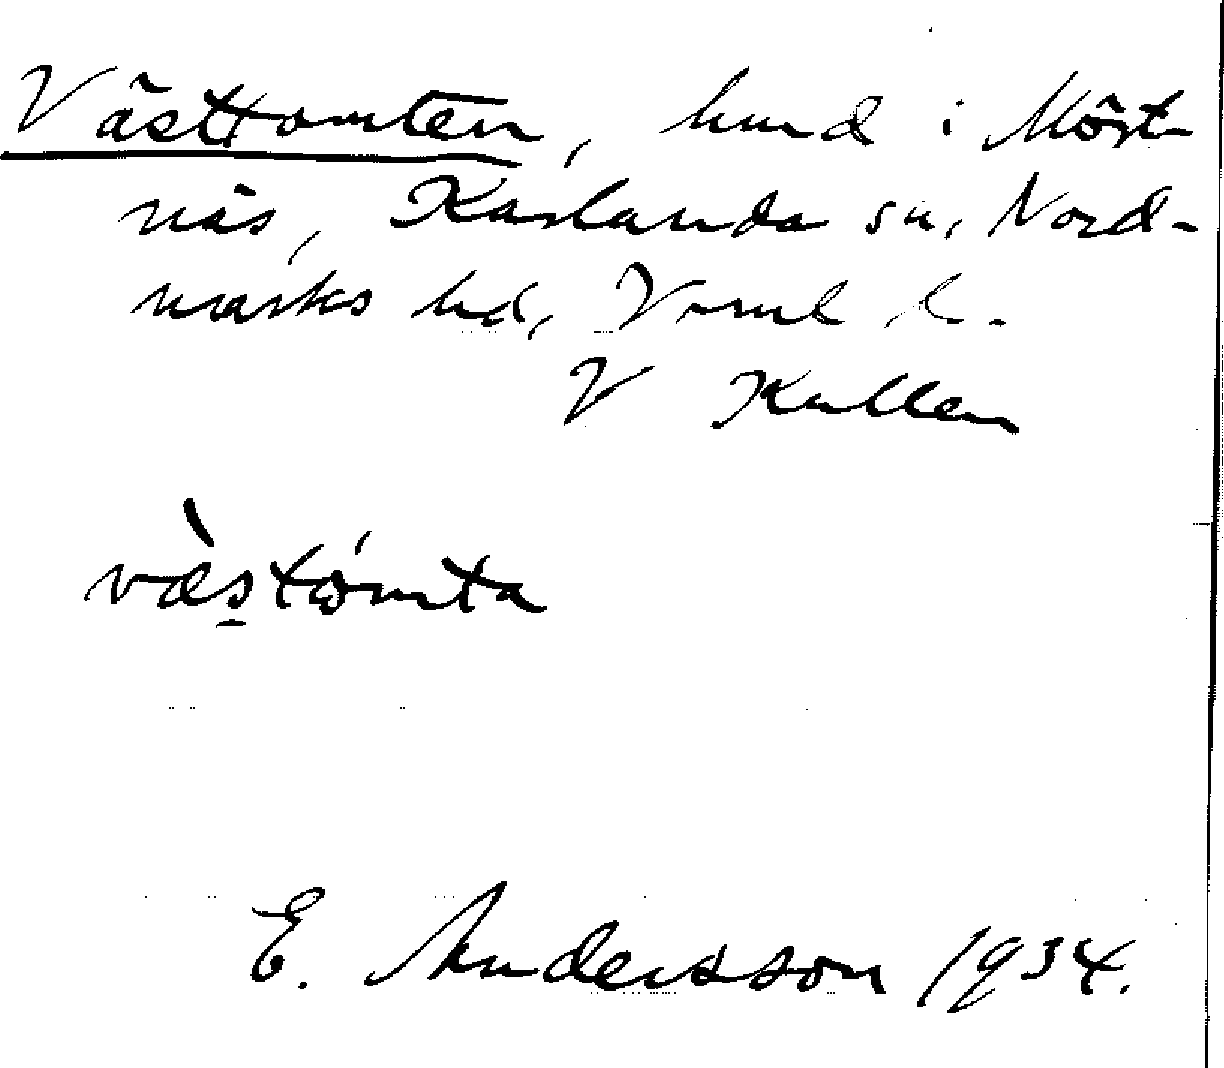 Västtomten, hmd i Möst-
näs, Karlanda sn, Nord-
marks hd, Vrml l.
V Kullen
vàstómta
E. Andersson 1934.